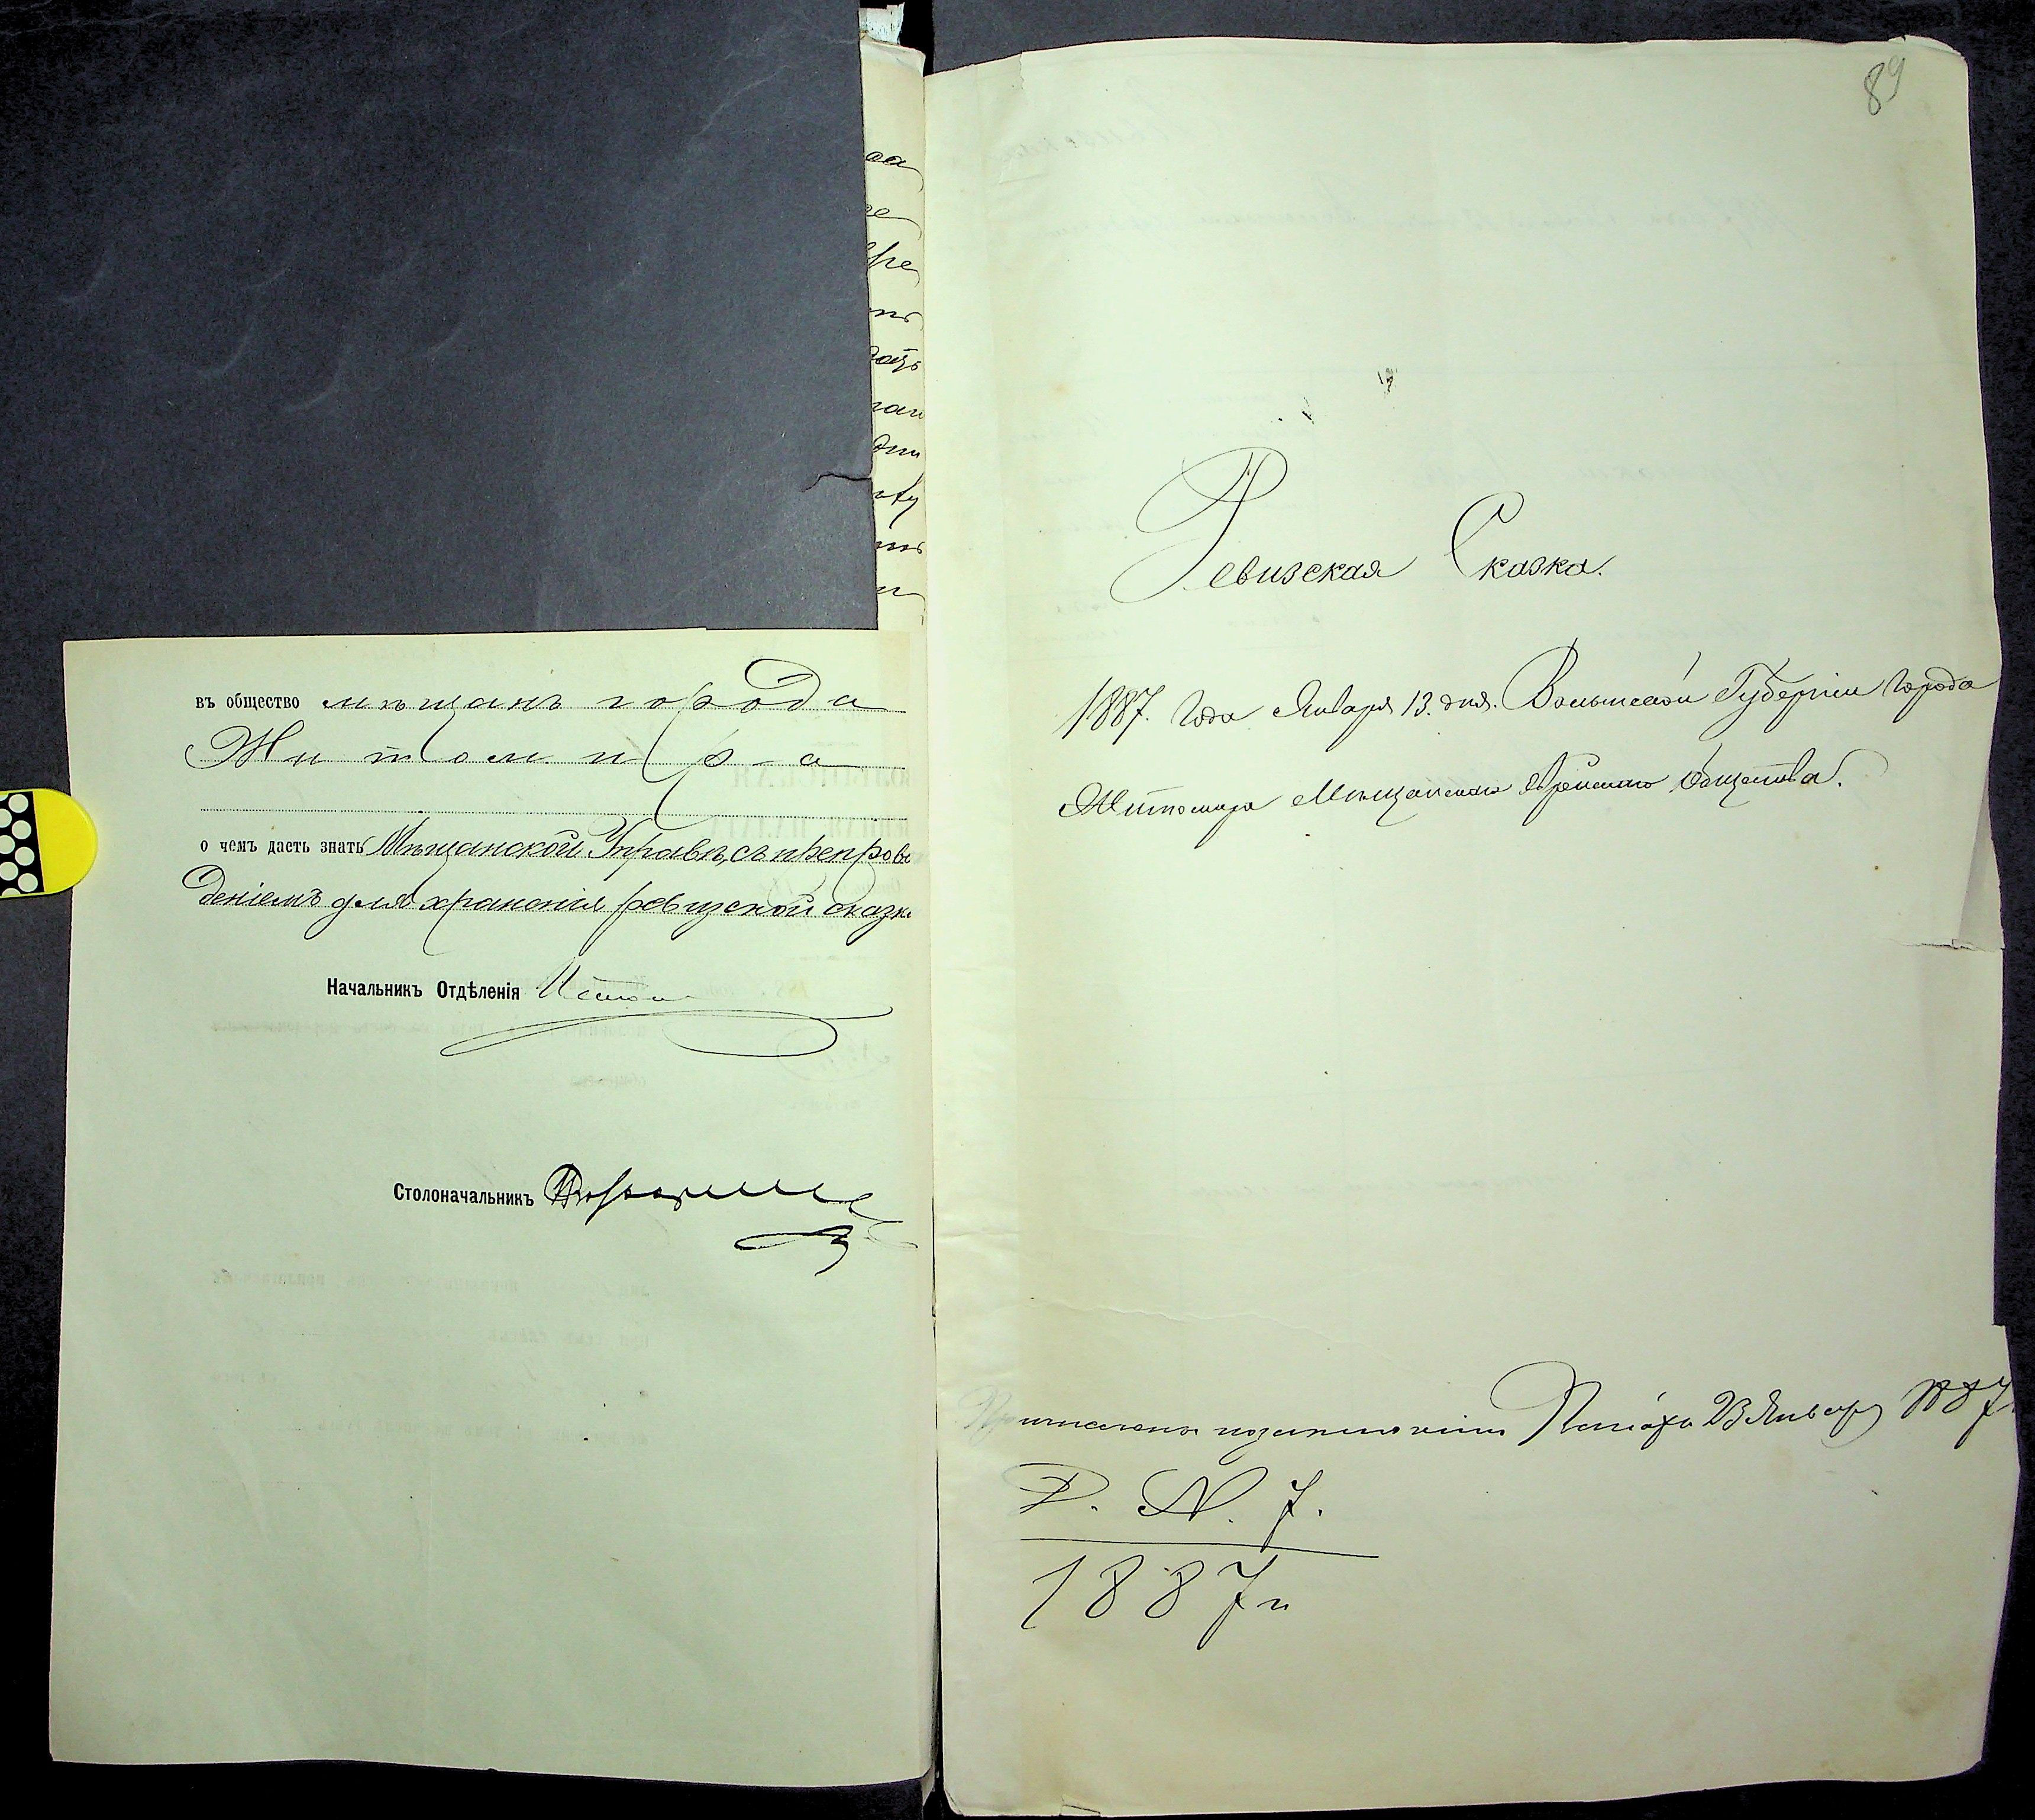 въ общество мѣщанъ города
Житомира
о чемъ даетъ знать Мѣщанской Управѣ, съ препрово
деніемъ для храненія ревизской сказк
Начальникъ Отдѣленія
Столоначальникъ
89
Ревизская Сказка.
1887. Года Января 13. дня. Волынской Губерніи Города
Житомира Мѣщанскаго Еврейскаго Общества.
Палаты 23 Января 1887
Д. №. 7.
1887 г